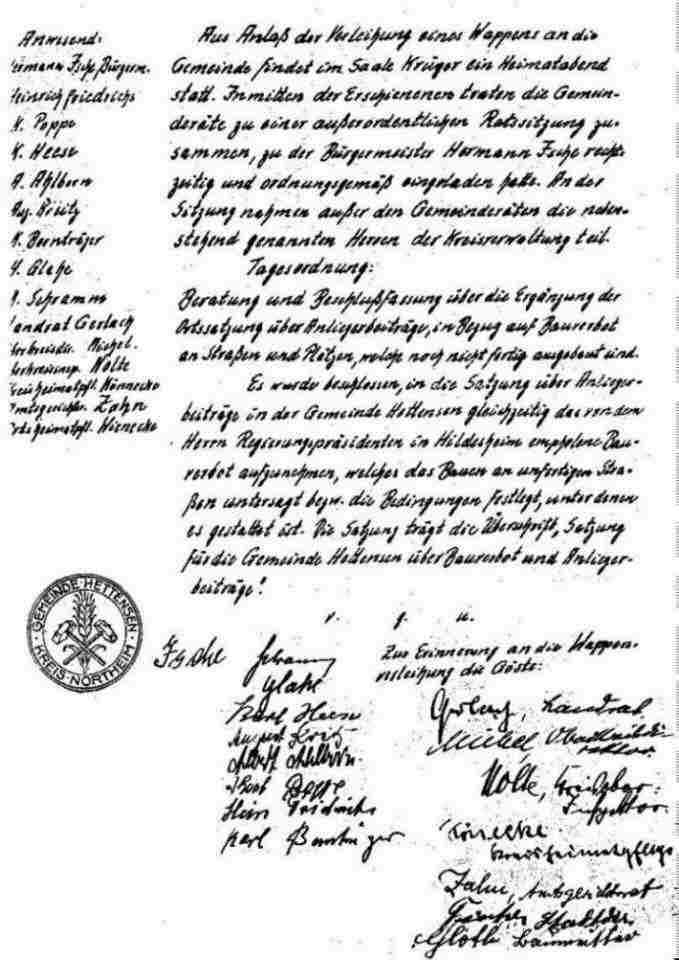 Anwesend:
Hermann Ische, Bürgerm.
Heinrich Friedrichs
K. Poppe
K. Heese
A. Ahlborn
Aug. Kreitz
K. Bornträger
H. Glahe
Schramm
Landrat Gerlach
Michel
Nolte
Kreisheimatpfl. Könnecke
Amtsgerichtsr. Zahn
Ortsheimatpfl. Wienecke
Aus Anlaß der Verleihung eines Wappens an die
Gemeinde findet im Saale Krüger ein Heimatabend
statt. Inmitten der Erschienenen traten die Gemein-
deräte zu einer außerordentlichen Ratssitzung zu-
sammen, zu der Bürgermeister Hermann Ische recht-
zeitig und ordnungsgemäß eingeladen hatte. An der
Sitzung nahmen außer den Gemeinderäten die neben-
stehend genannten Herren der Kreisverwaltung teil.
Tagesordnung:
Beratung und Beschlußfassung über die Ergänzung der
Ortssatzung über Anliegerbeiträge, in Bezug auf Bauverbot
an Straßen und Plätzen, welche noch nicht fertig ausgebaut sind.
Es wurde beschlossen, in die Satzung über Anlieger-
beiträge in der Gemeinde Hettensen gleichzeitig das von dem
Herrn Regierungspräsidenten in Hildesheim empfolene Bau-
verbot aufzunehmen, welches das Bauen an unfertigen Stra-
ßen untersagt bezw. die Bedingungen festlegt, unter denen
es gestattet ist. Die Satzung trägt die Überschrift, Satzung
für die Gemeinde Hettensen über Bauverbot und Anlieger-
beiträge!
v. g. u.
GEMEINDE·HETTENSEN
KREIS·NORTHEIM
Ische
Schramm
Glahe
Karl Heese
August Kreitz
Albert Ahlborn
Poppe
Hein Friedrichs
Karl Bornträger
Zur Erinnerung an die Wappen-
verleihung die Gäste:
Gerlach, Landrat
Michel Oberkreisdi-
rektor.
Nolte, Kreisober-
Inspektor.
Könecke
Kreisheimatpfleger
Zahn, Amtsgerichtsrat
Baumeister